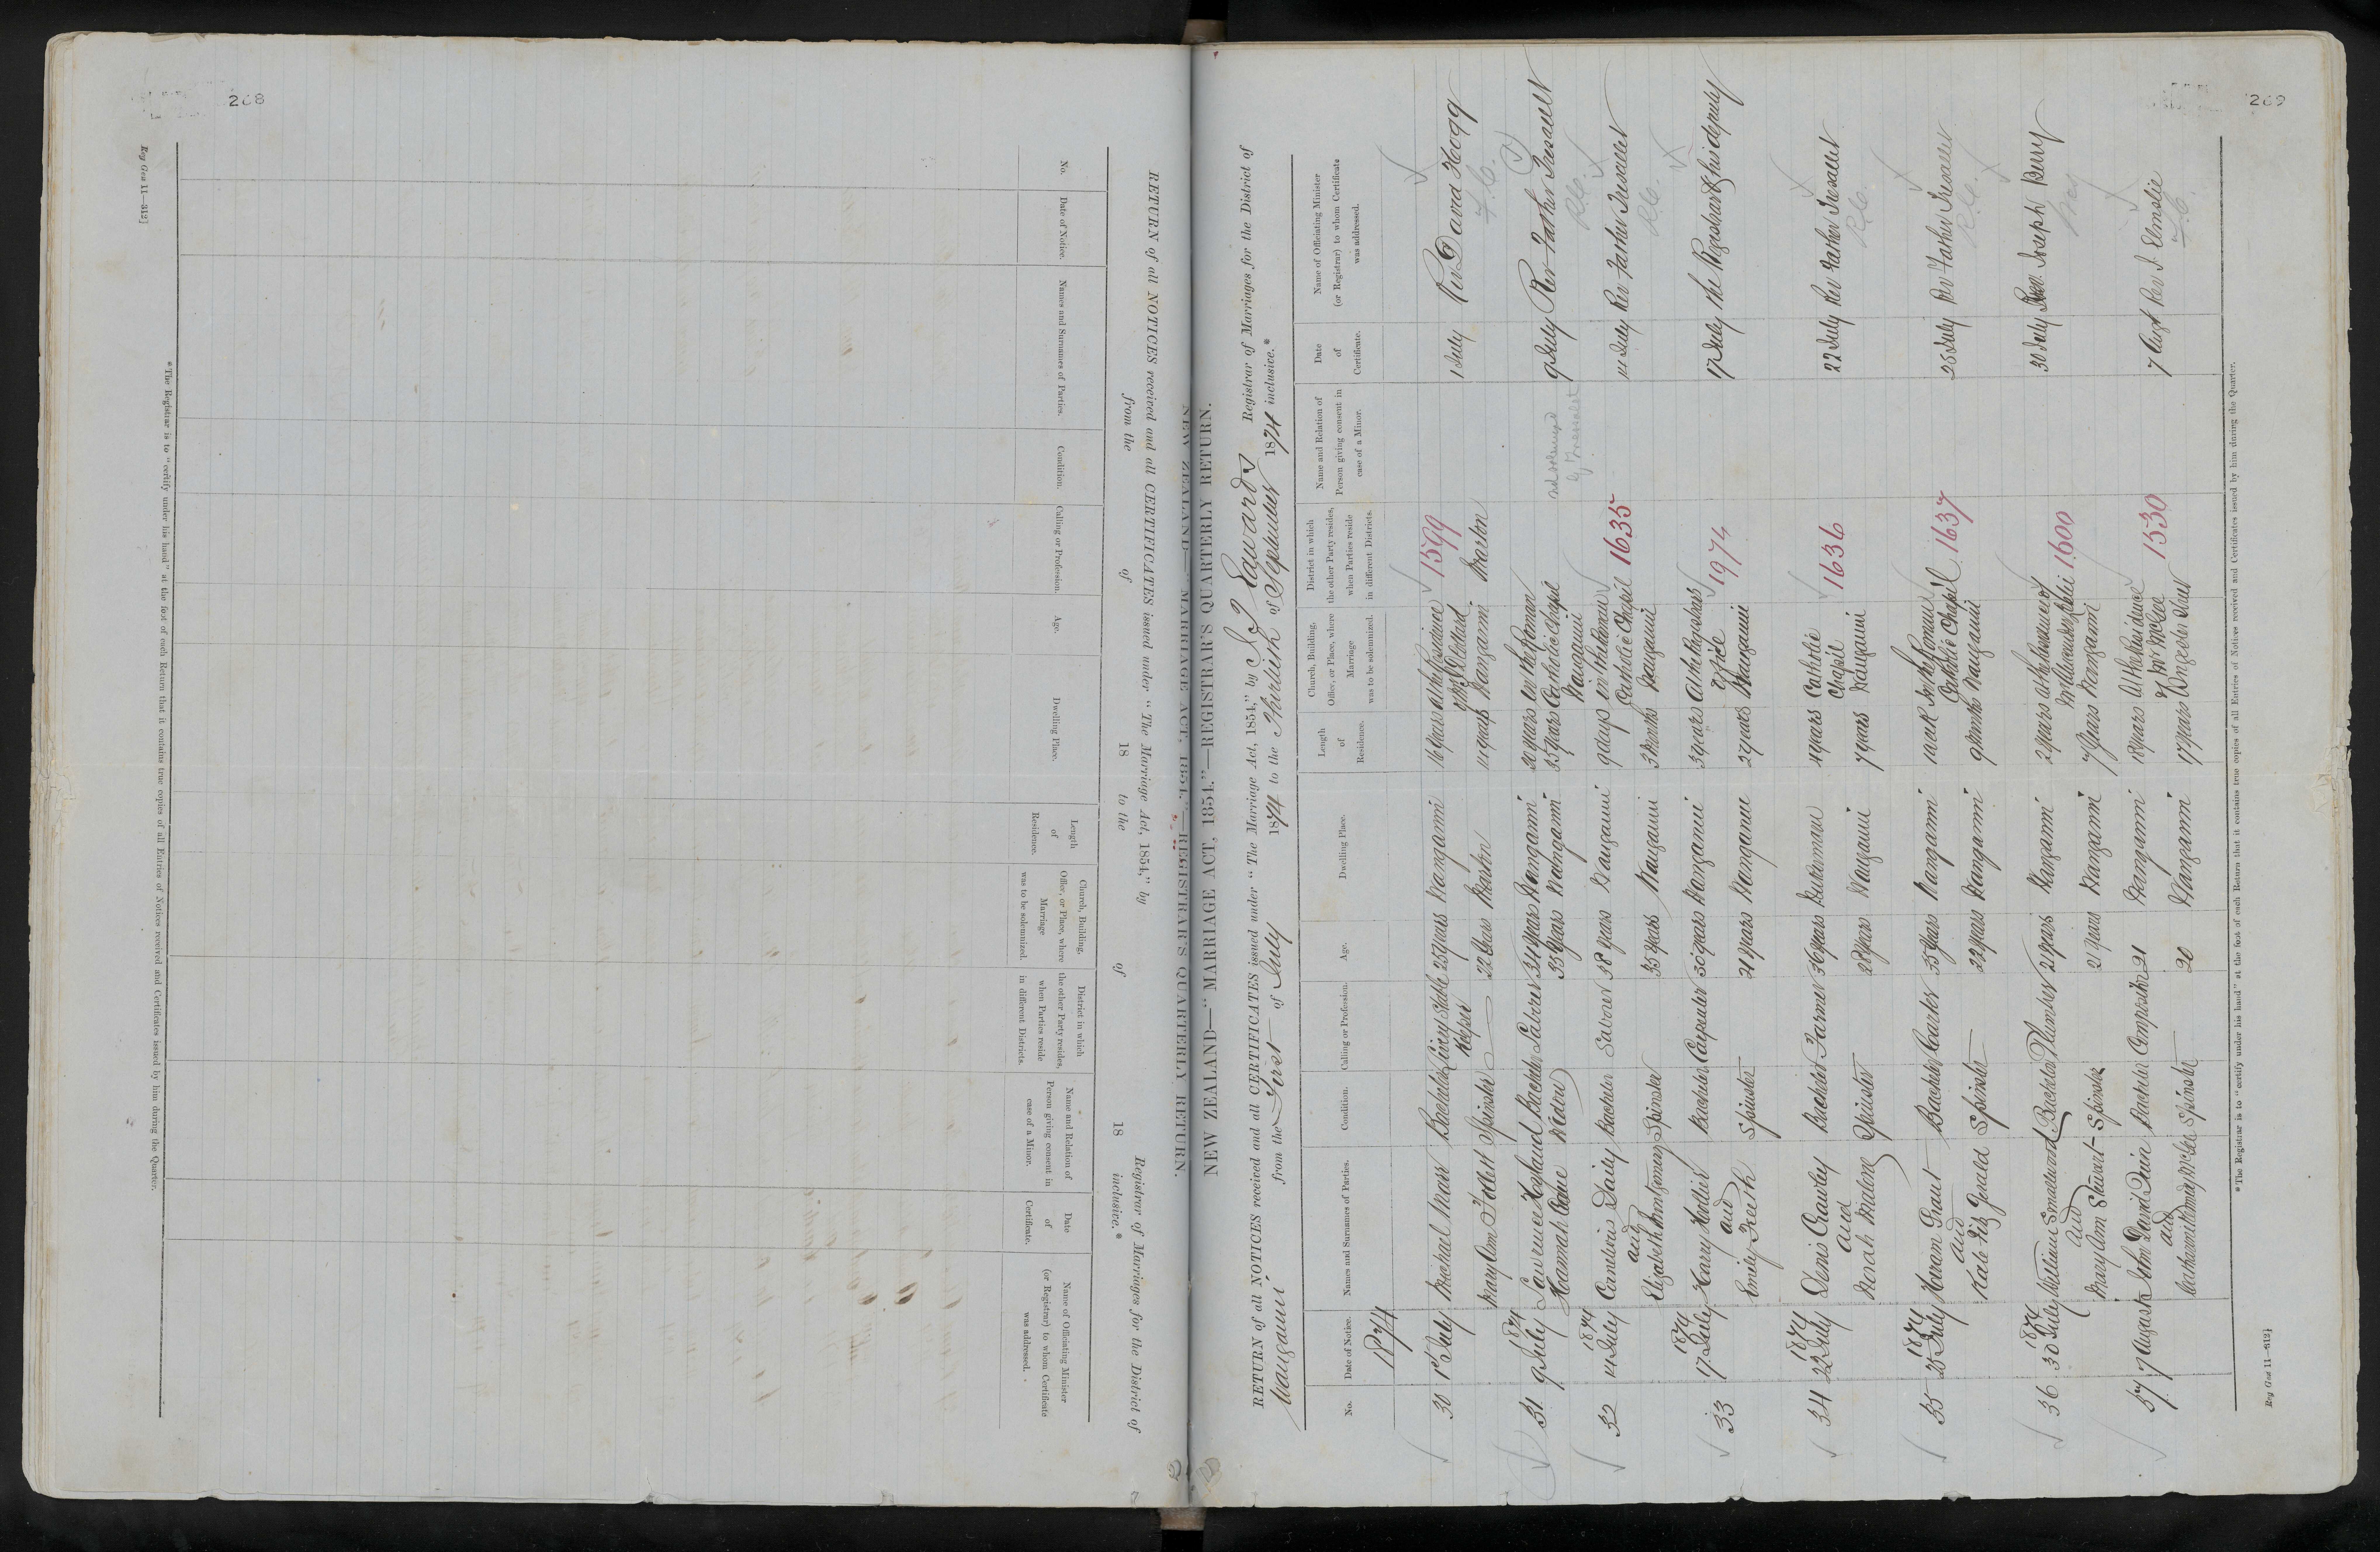 268
Reg Gen 11—312]
RETURN of all NOTICES received and all CERTIFICATES issued under "The Marriage Act, 1854," by Registrar of Marriages for the District of
from the of 18 to the of 18 inclusive.*
No. Date of Notice. Names and Surnames of Parties. Condition. Calling or Profession. Age. Dwelling Place. Length of Residence. Church, Building, Office, or Place, where Marriage was to be solemnized. District in which the other Party resides, when Parties reside in different Districts. Name and Relation of Person giving consent in case of a Minor. Date of Certificate. Name of Officiating Minister (or Registrar) to whom Certificate was addressed.
*The Registrar is to "certify under his hand" at the foot of each Return that it contains true copies of all Entries of Notices received and Certificates issued by him during the Quarter.
NEW ZEALAND—"MARRIAGE ACT, 1854."—REGISTRAR'S QUARTERLY RETURN.
269
NEW ZEALAND—"MARRIAGE ACT, 1854."—REGISTRAR'S QUARTERLY RETURN.
RETURN of all NOTICES received and all CERTIFICATES issued under "The Marriage Act, 1854," by Edwards Registrar of Marriages for the District of
Wanganui from the First of July 1874 to the Thirtieth of September 1874 inclusive.*
No. Date of Notice. Names and Surnames of Parties. Condition. Calling or Profession. Age. Dwelling Place. Length of Residence. Church, Building, Office, or Place, where Marriage was to be solemnized. District in which the other Party resides, when Parties reside in different Districts. Name and Relation of Person giving consent in case of a Minor. Date of Certificate. Name of Officiating Minister (or Registrar) to whom Certificate was addressed.
1874
30 1st July Michael Bachelor Livery Stable Keeper 25 years Wanganui 16 years At the Residence 1599 1 July Rev David Hogg F.C.
Mary Ann Follett Spinster 22 Years Marton 11 years Wanganui Marton
1874
31 9 July Lawrence Bachelor Labourer 34 years Wanganui 30 years In the Roman 9 July Rev Father Tresallet R.C.
Hannah Widow 35 years Wanganui Catholic Chapel Wanganui
1874
32 14 July Daily Bachelor Labourer 38 years Wanganui 9 days in the Roman Catholic Chapel 1635 14 July Rev Father Tresallet R.C.
and
Elizabeth Montgomery Spinster 35 years Wanganui 3 Months Wanganui
1874
33 17 July Harry Bachelor Carpenter 30 years Wanganui 3 years At the Registrars Office 1974 17 July The Registrar or his deputy
and
Emily Spinster 21 years Wanganui 2 years Wanganui
1874
34 22 July Denis Crawley Bachelor Farmer 36 years 4 years Catholic Chapel 1636 22 July Rev Father Tresallet R.C.
and
Norah Malone Spinster 28 years Wanganui 7 years Wanganui
1874
35 25 July Hiram Grant Bachelor Carter 35 years Wanganui 1 week In the Roman Catholic Chapel 1637 25 July Rev Father Tresallet R.C.
and
Kate Fitz Gerald Spinster 22 years Wanganui 9 Months Wanganui
1874
36 30 July William Smallwood Bachelor Plumber 21 years Wanganui 2 years at the Residence of 1600 30 July Rev. Joseph Berry
and
Mary Ann Stewart Spinster 21 years Wanganui 7 years Wanganui
37 7 August John David Bachelor Compositor 21 Wanganui 18 years At the Residence of Mr McGee 1530 7 Augt Rev J. Elmslie F.C.
and
Catharine McGee Spinster 20 Wanganui 17 years Street
*The Registrar is to "certify under his hand" at the foot of each Return that it contains true copies of all Entries of Notices received and Certificates issued by him during the Quarter.
Reg Gen 11—312]